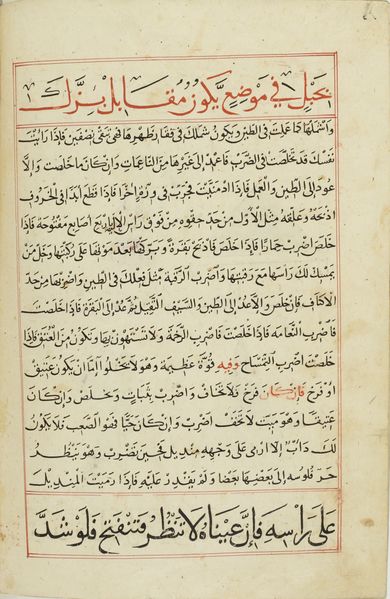 بحبل في موضع يكون مقابل بنزلك
واشلها ما عملت في الطين ويكون شلك في فقار ظهرها فهي تبقى نصفين فاذا رايت
نفسك قد تخلصت في الضرب فاعمد الى غيرها من التاعمات وان كان ما خلصت والا
عود الى الطين والعمل فاذا ادمنت فجرب في راس فاذا تنظع ابدا في الخروف
اذبحه وعلقه مثل الاول من حد حقوه من فوق راس اربع اصابع مفتوحة فاذا
خلص اضرب حمارا فاذا خلص فاذبح بقرة وبركها بعد موتها على ركبتها وخل من
يمسك لك راسها مع رقبتها واضرب الرقبة مثل فعلك في الطين واضربها من حد
الاكتاف فان خلص والا عد الى الطين والسيف الثقيل ثم عد الى البقرة فاذا خلصت
فاضرب النعامه فاذا خلصت فاضرب الرخمة ولا تستهون بها وتكون من العنق فاذا
خلصت اضرب التمساح وفيه قوة عظيمة وهو لا يخلوا اما ان يكون عتيق
او فرخ فان كان فرخ فلا تخاف واضرب بثبات وتخلص وان كان
عتيقا وهو ميت لا تخف اضرب وان كان حيا فهو الصعب فلا يكون
لك داب الا ارمى على وجهه منديل فحين تضرب وهو ينظر
حرد فلوسه الى بعضها بعضا ولم يقدر عليه فاذا رميت المنديل
على راسه فان عيناه لا تنظر فتنفتح فلو شد